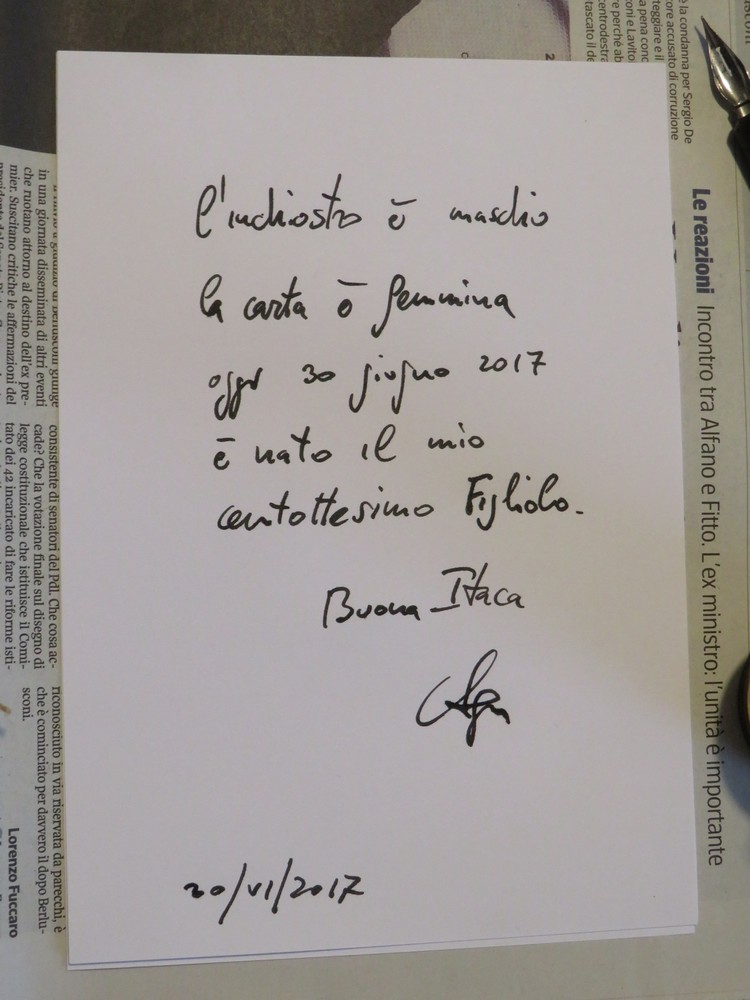 l'inchiostro è maschio
la carta è femmina
oggi 30 giugno 2017
è nato il mio
centottesimo Figliolo.
Buona Itaca
20/VI/2017
Le reazioni Incontro tra Alfano e Fitto. L'ex ministro: l'unità è importante
è la condanna per Sergio De
ore accusato di corruzione
teggiare e il
a pena conc
oni e Lavito
re perché ab
centrodestra
tascato il de
in una giornata disseminata di altri eventi
che ruotano attorno al destino dell'ex pre-
mier. Suscitano critiche le affermazioni del
consistente di senatori del Pdl. Che cosa ac-
cade? Che la votazione finale sul disegno di
legge costituzionale che istituisce il Comi-
tato dei 42 incaricato di fare le riforme isti-
riconosciuto in via riservata da parecchi, è
che è cominciato per davvero il dopo Berlu-
sconi.
Lorenzo Fuccaro